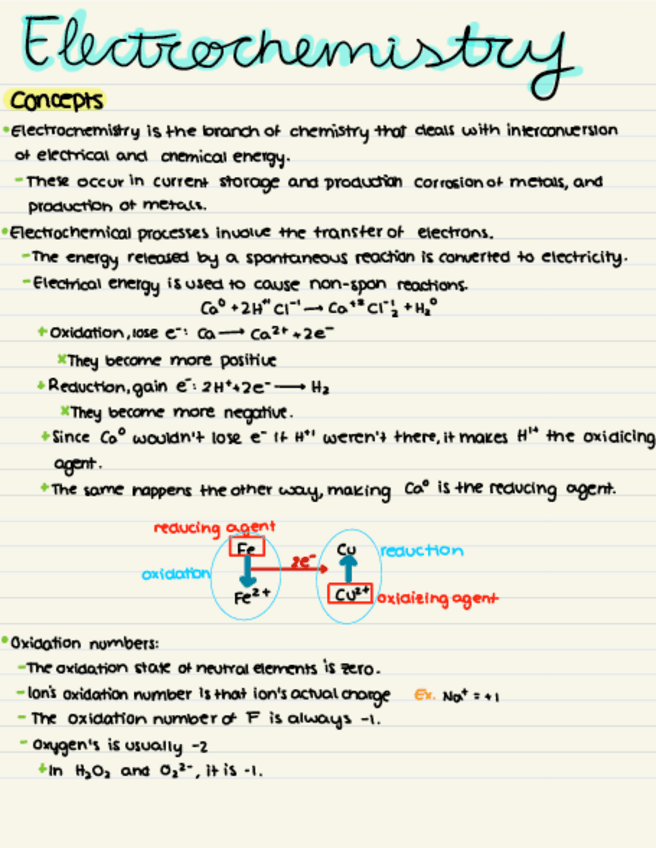 Electrochemistry
Concepts
•Electrochemistry is the branch of chemistry that deals with interconversion
of electrical and chemical energy.
-These occur in current storage and production corrosion of metals, and
production of metals.
•Electrochemical processes involve the transfer of electrons.
-The energy released by a spontaneous reaction is converted to electricity.
-Electrical energy is used to cause non-spon reactions.
Ca⁰ + 2H⁺¹Cl⁻¹ → Ca⁺²Cl⁻¹₂ + H₂⁰
+Oxidation, lose e⁻: Ca → Ca²⁺ + 2e⁻
×They become more positive
+Reduction, gain e⁻: 2H⁺+2e⁻ → H₂
×They become more negative.
+Since Ca⁰ wouldn't lose e⁻ if H⁺¹ weren't there, it makes H¹⁺ the oxidicing
agent.
+The same happens the other way, making Ca⁰ is the reducing agent.
reducing agent
Fe 2e⁻ Cu reduction
oxidation
Fe²⁺ Cu²⁺ oxidizing agent
•Oxidation numbers:
-The oxidation state of neutral elements is zero.
-Ion's oxidation number is that ion's actual charge Ex. Na⁺ = +1
- The oxidation number of F is always -1.
- Oxygen's is usually -2
+In H₂O₂ and O₂²⁻, it is -1.